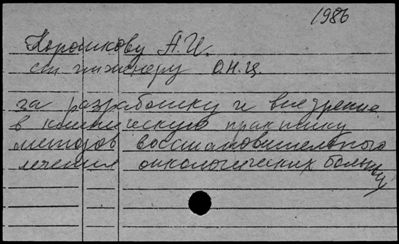 1986
Порошкову А.И.
ст. инженеру О.Н.Ц.
за разработку и внедрение
в клиническую практику
методов восстановительного
лечения онкологических больных